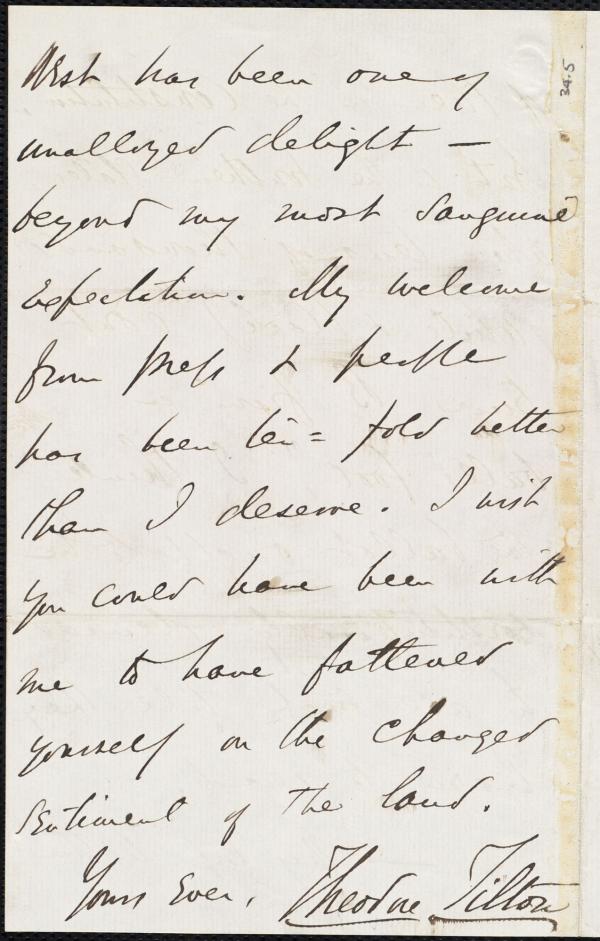 West has been one of
unalloyed delight —
beyond my most sanguine
expectation. My welcome
from press & people
has been ten=fold better
than I deserve. I wish
you could have been with
me to have fattened
yourself on the changed
sentiment of the land.
Yours Ever, Theodore Tilton
34.5